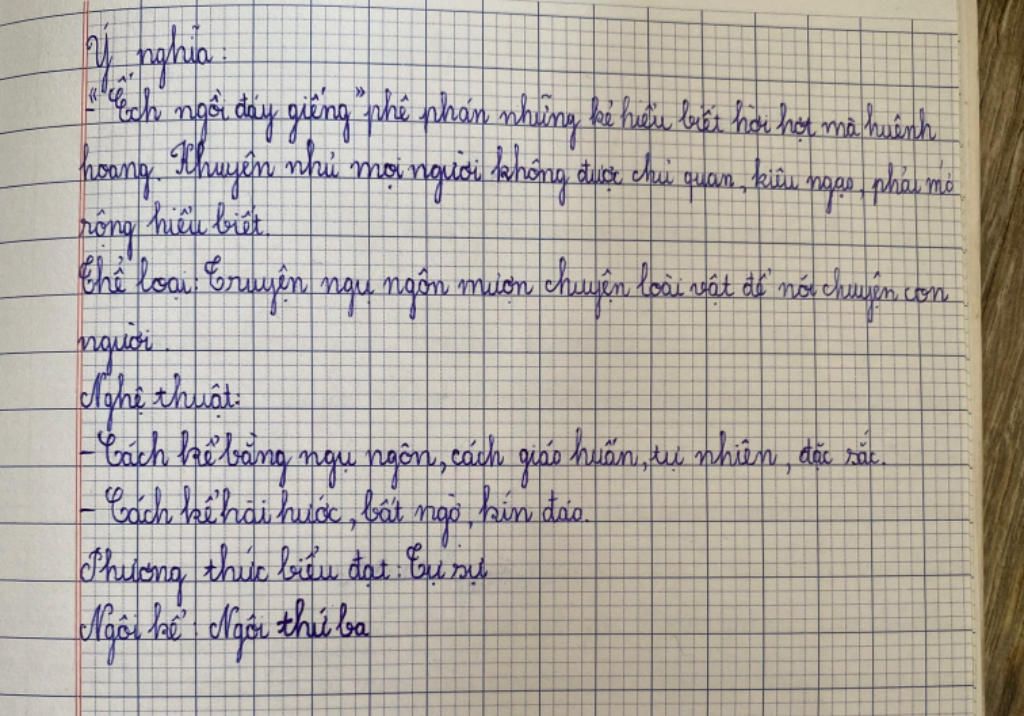 Ý nghĩa:
- "Ếch ngồi đáy giếng" phê phán những kẻ hiểu biết hời hợt mà huênh
hoang. Khuyên nhủ mọi người không được chủ quan, kiêu ngạo, phải mở
rộng hiểu biết.
Thể loại: Truyện ngụ ngôn mượn chuyện loài vật để nói chuyện con
người.
Nghệ thuật:
- Cách kể bằng ngụ ngôn, cách giáo huấn, tự nhiên, đặc sắc.
- Cách kể hài hước, bất ngờ, kín đáo.
Phương thức biểu đạt: Tự sự
Ngôi kể: Ngôi thứ ba